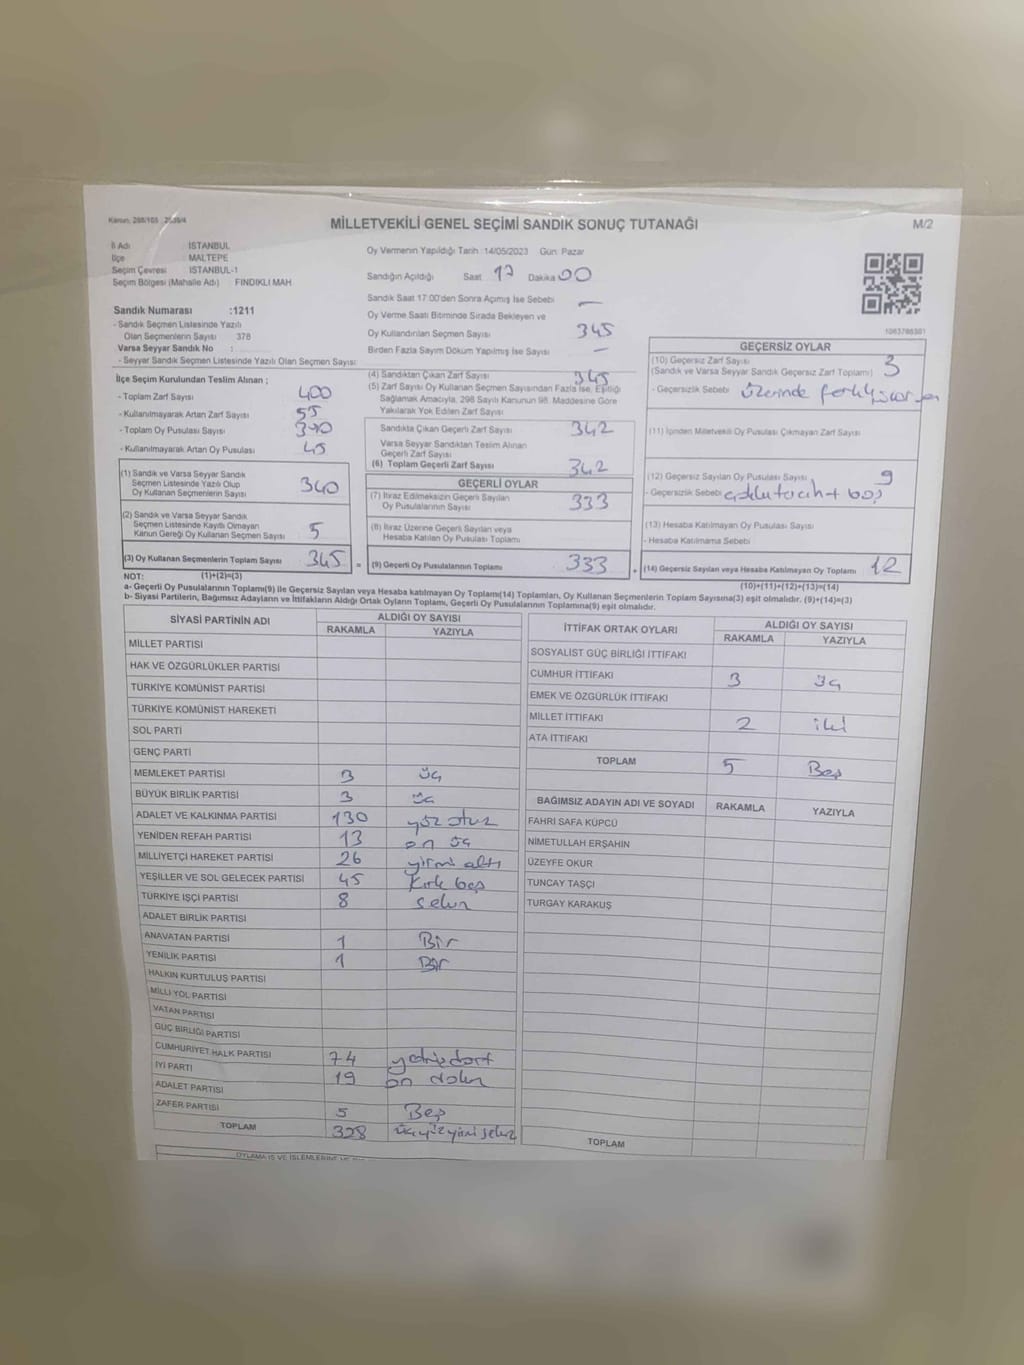 Kanun: 298/105 2839/4
MİLLETVEKİLİ GENEL SEÇİMİ SANDIK SONUÇ TUTANAĞI
M/2
İl Adı : İSTANBUL
İlçe : MALTEPE
Seçim Çevresi : İSTANBUL-1
Seçim Bölgesi (Mahalle Adı) : FINDIKLI MAH
Oy Vermenin Yapıldığı Tarih 14/05/2023 Gün: Pazar
Sandığın Açıldığı Saat 17 Dakika 00
Sandık Saat 17:00'den Sonra Açımış İse Sebebi —
Oy Verme Saati Bitiminde Sırada Bekleyen ve
Oy Kullandırılan Seçmen Sayısı 345
Birden Fazla Sayım Döküm Yapılmış İse Sayısı —
1063786301
Sandık Numarası :1211
- Sandık Seçmen Listesinde Yazılı
Olan Seçmenlerin Sayısı : 378
Varsa Seyyar Sandık No :
- Seyyar Sandık Seçmen Listesinde Yazılı Olan Seçmen Sayısı:
İlçe Seçim Kurulundan Teslim Alınan ;
- Toplam Zarf Sayısı 400
- Kullanılmayarak Artan Zarf Sayısı 55
- Toplam Oy Pusulası Sayısı 390
- Kullanılmayarak Artan Oy Pusulası 45
(1) Sandık ve Varsa Seyyar Sandık
Seçmen Listesinde Yazılı Olup
Oy Kullanan Seçmenlerin Sayısı 340
(2) Sandık ve Varsa Seyyar Sandık
Seçmen Listesinde Kayıtlı Olmayan
Kanun Gereği Oy Kullanan Seçmen Sayısı 5
(3) Oy Kullanan Seçmenlerin Toplam Sayısı 345 =
(4) Sandıktan Çıkan Zarf Sayısı 345
(5) Zarf Sayısı Oy Kullanan Seçmen Sayısından Fazla İse, Eşitliği
Sağlamak Amacıyla, 298 Sayılı Kanunun 98. Maddesine Göre
Yakılarak Yok Edilen Zarf Sayısı
Sandıkta Çıkan Geçerli Zarf Sayısı 342
Varsa Seyyar Sandıktan Teslim Alınan
Geçerli Zarf Sayısı
(6) Toplam Geçerli Zarf Sayısı 342
GEÇERLİ OYLAR
(7) İtiraz Edilmeksizin Geçerli Sayılan
Oy Pusulalarının Sayısı 333
(8) İtiraz Üzerine Geçerli Sayılan veya
Hesaba Katılan Oy Pusulası Toplamı
(9) Geçerli Oy Pusulalarının Toplamı 333 +
GEÇERSİZ OYLAR
(10) Geçersiz Zarf Sayısı 3
(Sandık ve Varsa Seyyar Sandık Geçersiz Zarf Toplamı)
- Geçersizlik Sebebi üzerinde
(11) İçinden Milletvekili Oy Pusulası Çıkmayan Zarf Sayısı
(12) Geçersiz Sayılan Oy Pusulası Sayısı 9
- Geçersizlik Sebebi + boş
(13) Hesaba Katılmayan Oy Pusulası Sayısı
- Hesaba Katılmama Sebebi
(14) Geçersiz Sayılan veya Hesaba Katılmayan Oy Toplamı 12
NOT: (1)+(2)=(3)
(10)+(11)+(12)+(13)=(14)
a- Geçerli Oy Pusulalarının Toplamı(9) ile Geçersiz Sayılan veya Hesaba katılmayan Oy Toplamı(14) Toplamları, Oy Kullanan Seçmenlerin Toplam Sayısına(3) eşit olmalıdır. (9)+(14)=(3)
b- Siyasi Partilerin, Bağımsız Adayların ve İttifakların Aldığı Ortak Oyların Toplamı, Geçerli Oy Pusulalarının Toplamına(9) eşit olmalıdır.
SİYASİ PARTİNİN ADI
ALDIĞI OY SAYISI
RAKAMLA YAZIYLA
MİLLET PARTİSİ
HAK VE ÖZGÜRLÜKLER PARTİSİ
TÜRKİYE KOMÜNİST PARTİSİ
TÜRKİYE KOMÜNİST HAREKETİ
SOL PARTİ
GENÇ PARTİ
MEMLEKET PARTİSİ 3 üç
BÜYÜK BİRLİK PARTİSİ 3 üç
ADALET VE KALKINMA PARTİSİ 130 yüz otuz
YENİDEN REFAH PARTİSİ 13 on üç
MİLLİYETÇİ HAREKET PARTİSİ 26 yirmi altı
YEŞİLLER VE SOL GELECEK PARTİSİ 45 kırk beş
TÜRKİYE İŞÇİ PARTİSİ 8 sekiz
ADALET BİRLİK PARTİSİ
ANAVATAN PARTİSİ 1 Bir
YENİLİK PARTİSİ 1 Bir
HALKIN KURTULUŞ PARTİSİ
MİLLİ YOL PARTİSİ
VATAN PARTİSİ
GÜÇ BİRLİĞİ PARTİSİ
CUMHURİYET HALK PARTİSİ 74 yetmişdört
İYİ PARTİ 19 on dokuz
ADALET PARTİSİ
ZAFER PARTİSİ 5 Beş
TOPLAM 328 üçyüzyirmi sekiz
İTTİFAK ORTAK OYLARI
ALDIĞI OY SAYISI
RAKAMLA YAZIYLA
SOSYALİST GÜÇ BİRLİĞİ İTTİFAKI
CUMHUR İTTİFAKI 3 üç
EMEK VE ÖZGÜRLÜK İTTİFAKI
MİLLET İTTİFAKI 2 iki
ATA İTTİFAKI
TOPLAM 5 Beş
BAĞIMSIZ ADAYIN ADI VE SOYADI RAKAMLA YAZIYLA
FAHRİ SAFA KÜPCÜ
NİMETULLAH ERŞAHİN
ÜZEYFE OKUR
TUNCAY TAŞÇI
TURGAY KARAKUŞ
TOPLAM
OYLAMA İŞ VE İŞLEMLERİNE